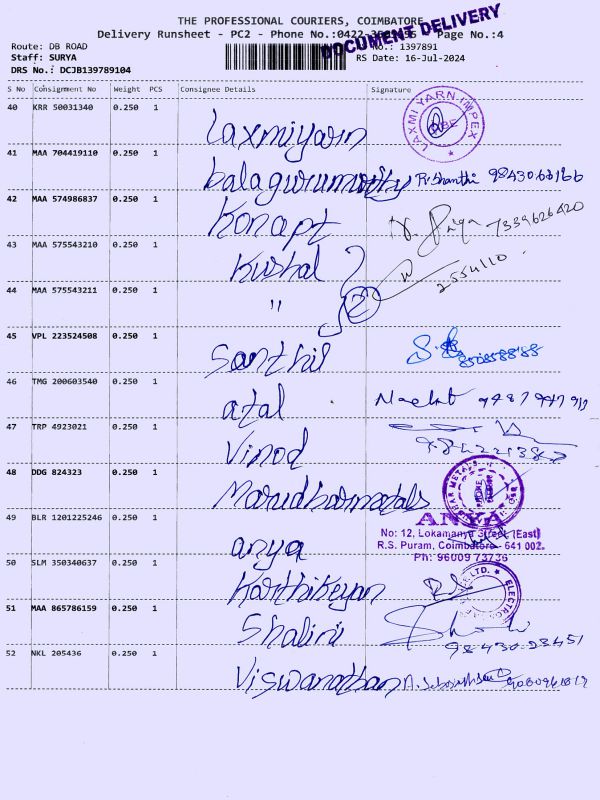 THE PROFESSIONAL COURIERS, COIMBATORE
DOCUMENT DELIVERY
Delivery Runsheet - PC2 - Phone No.:0422- Page No.:4
Route: DB ROAD
No.: 1397891
Staff: SURYA
RS Date: 16-Jul-2024
DRS No.: DCJB139789104
S No Consignment No Weight PCS Consignee Details Signature
40 KRR 50031340 0.250 1 Laxmiyarn LAXMI YARN IMPEX CBE
41 MAA 704419110 0.250 1 balagurumurthy
42 MAA 574986837 0.250 1 Konapt
43 MAA 575543210 0.250 1 Kushal
44 MAA 575543211 0.250 1 " 2 2554110
45 VPL 223524508 0.250 1 Santhil
46 TMG 200603540 0.250 1 atal
47 TRP 4923021 0.250 1 Vinod
48 DDG 824323 0.250 1 Marudharmetals
49 BLR 1201225246 0.250 1 anya ANYA
No: 12, Lokamanya Street (East)
R.S. Puram, Coimbatore - 641 002.
Ph: 96009 73736
50 SLM 350340637 0.250 1 Karthikeyan
51 MAA 865786159 0.250 1 Shalini 98430-23451
52 NKL 205436 0.250 1 Viswanathan